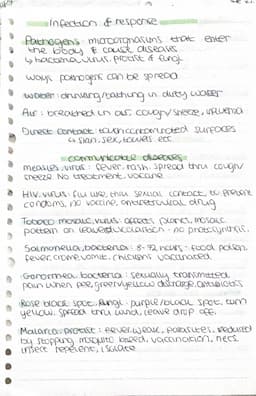 Infection & response
Pathogens: microorganisms that enter
the body & cause diseases
↳ bacteria, virus, protist & fungi
ways pathogens can be spread
Water: drinking/bathing in dirty water
Air: breathed in air cough/sneeze, influenza
Direct contact: touch contaminated surfaces
↳ skin, sex, towels etc
communicable diseases
measles, virus: fever, rash, spread thru cough/
sneeze. No treatment, vaccine
HIV, virus: flu like, thru sexual contact, to prevent
condoms, no vaccine, antiretroviral drug
Tobacco mosaic, virus: affects plants, mosaic
pattern on leaves discoloration - no photosynthesis.
Salmonella, bacteria: 8-72 hours - food poison
fever, cramp, vomit, chickens vaccinated.
Gonorrhea, bacteria: sexually transmitted
pain when pee, green/yellow discharge, antibiotics
Rose black spot, fungi: purple/black spot, turn
yellow. spread thru wind, leaves drop off.
Malaria, protist: fever, weak, parasites, reduced
by stopping mosquito breed, vaccination, nets
insect repellent, isolate